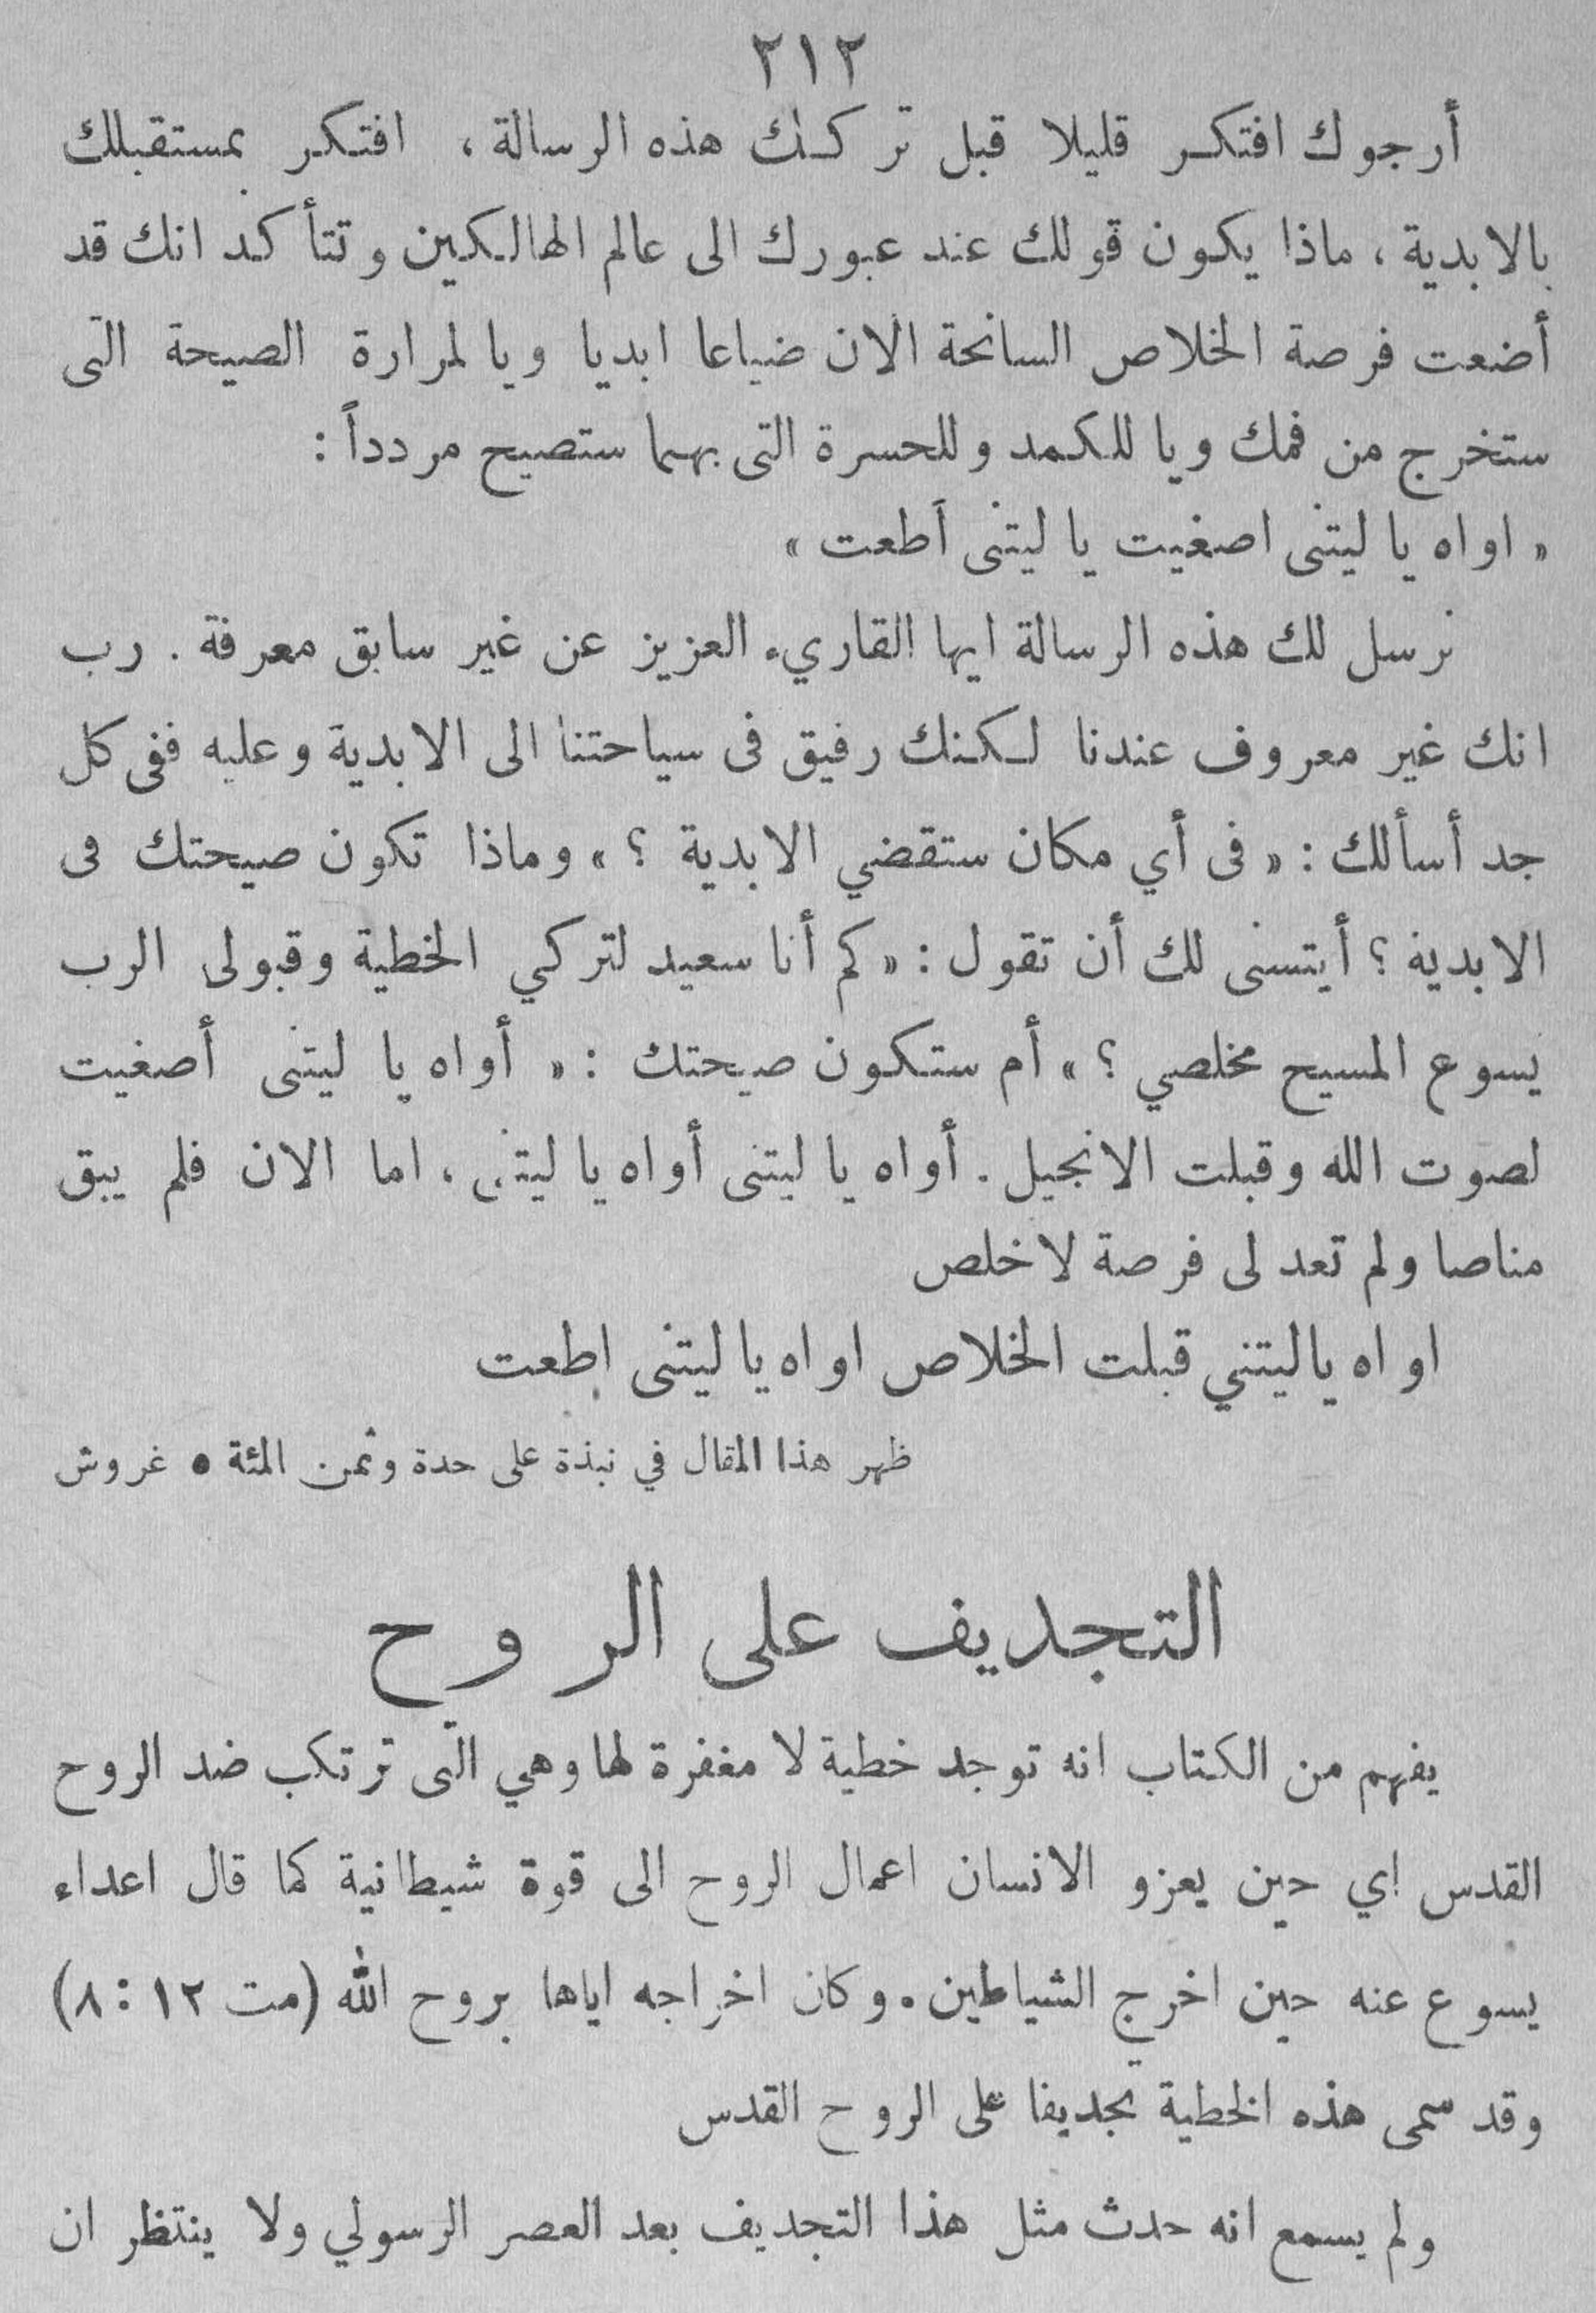 ٢١٢
أرجوك افتكر قليلا قبل تركك هذه الرسالة، افتكر بمستقبلك
بالابدية، ماذا يكون قولك عند عبورك الى عالم الهالكين وتتأكد انك قد
أضعت فرصة الخلاص السانحة الان ضياعا ابديا ويا لمرارة الصيحة التى
ستخرج من فمك ويا للكمد وللحسرة التى بهما ستصيح مردداً :
« اواه يا ليتنى اصغيت يا ليتنى أطعت »
نرسل لك هذه الرسالة ايها القاريء العزيز عن غير سابق معرفة . رب
انك غير معروف عندنا لكنك رفيق فى سياحتنا الى الابدية وعليه ففى كل
جد أسألك : « فى أي مكان ستقضي الابدية ؟ » وماذا تكون صيحتك فى
الابدية ؟ أيتسنى لك أن تقول : « كم أنا سعيد لتركي الخطية وقبولى الرب
يسوع المسيح مخلصي ؟ » أم ستكون صيحتك : « أواه يا ليتنى أصغيت
لصوت الله وقبلت الانجيل . أواه يا ليتنى أواه يا ليتنى ، اما الان فلم يبق
مناصا ولم تعد لى فرصة لاخلص
اواه ياليتني قبلت الخلاص اواه يا ليتنى اطعت
ظهر هذا المقال في نبذة على حدة وثمن المئة ٥ غروش
التجديف على الروح
يفهم من الكتاب انه توجد خطية لا مغفرة لها وهي التى ترتكب ضد الروح
القدس اي حين يعزو الانسان اعمال الروح الى قوة شيطانية كما قال اعداء
يسوع عنه حين اخرج الشياطين . وكان اخراجه اياها بروح الله (مت ١٢ : ٨)
وقد سمى هذه الخطية تجديفا على الروح القدس
ولم يسمع انه حدث مثل هذا التجديف بعد العصر الرسولي ولا ينتظر ان